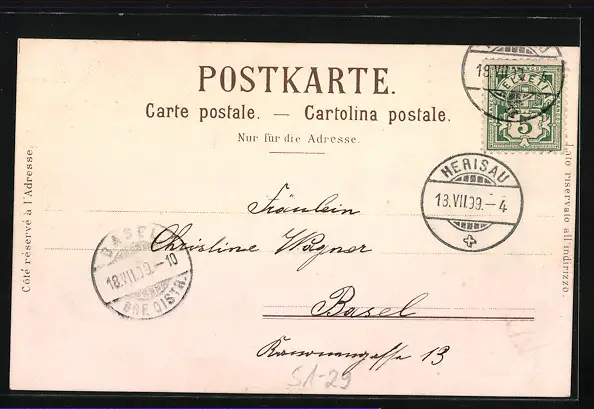 POSTKARTE.
Carte postale. — Cartolina postale.
Nur für die Adresse.
Côté réservé à l'Adresse.
Lato riservato all indirizzo.
HELVETIA
5
18.VII.99.
HERISAU
18.VII.99.–4
BASEL
18.VII.99.–10
BRF. DISTR.
Fräulein
Christine Wagner
Basel
Kanonengasse 13
S1-29